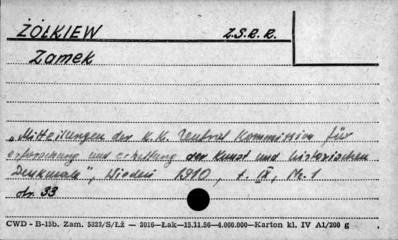 ŻÓŁKIEW Z.S.R.R.
Zamek
„Mitteilungen der K.K. Zentral Kommission für
erforschung und erhaltung der Kunst und historischen
Denkmale", Wiedeń 1910, t. IX, Nr. 1
str. 33
CWD - B-15b. Zam. 5323/S/Łż — 3016—Łak—15.11.56—4.000.000—Karton kl. IV A1/200 g